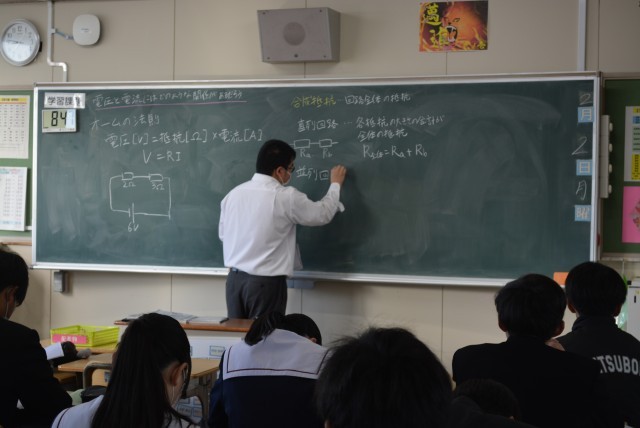 学習課題
電圧と電流にはどのような関係があるか
84
オームの法則
電圧[V]=抵抗[Ω]×電流[A]
V=RI
2Ω
6V
合成抵抗…回路全体の抵抗
直列回路…各抵抗の大きさの合計が
全体の抵抗
Ra Rb
R全体=Ra+Rb
並列回
2
月
2
日
月
TSUBO